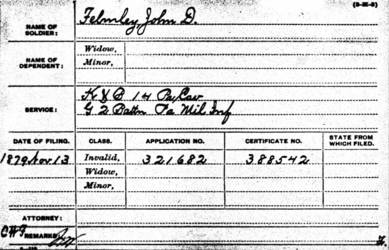 (3-MS-3)
NAME OF SOLDIER: Felmley, John D.
NAME OF DEPENDENT: Widow,
Minor,
SERVICE: K & B 14 Pa Cav
G 2 Battn Pa Mil Inf
DATE OF FILING. CLASS. APPLICATION NO. CERTIFICATE NO. STATE FROM WHICH FILED.
1879 Nov 13 Invalid, 321682 388542
Widow,
Minor,
ATTORNEY:
REMARKS: